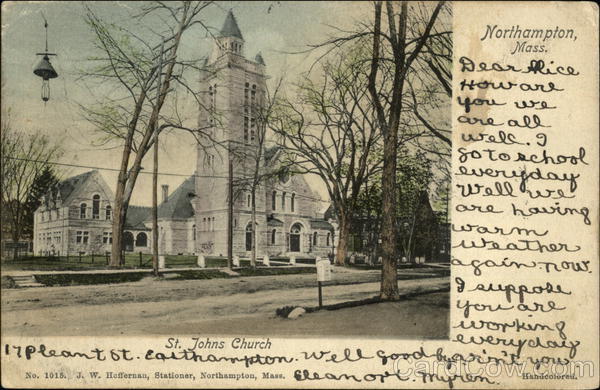 Northampton,
Mass.
Dear Alice
How are
you we
are all
well. I
go to school
everyday
Well we
are having
warm
weather
again now.
I suppose
you are
working
everyday
havin't you
St. Johns Church
17 Pleant St. Easthampton. Well good
No. 1015. J. W. Heffernan, Stationer, Northampton, Mass. Handcolored.
Eleanor
CardCow.com